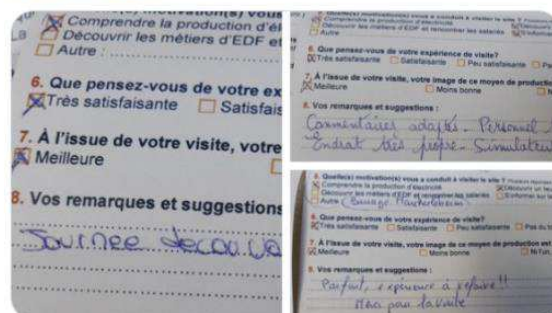 Comprendre la production d'él
Découvrir les métiers d'EDF et
Autre :
6. Que pensez-vous de votre ex
Très satisfaisante Satisfais
7. À l'issue de votre visite, votre
Meilleure
8. Vos remarques et suggestions
Journee decouve
Comprendre la production d'électricité
Découvrir les métiers d'EDF et rencontrer les salariés
Autre
6. Que pensez-vous de votre expérience de visite?
Très satisfaisante Satisfaisante Peu satisfaisante
7. À l'issue de votre visite, votre image de ce moyen de production
Meilleure Moins bonne
8. Vos remarques et suggestions :
Commentaires adaptés - Personnel
Endroit très propre - Simulateur
5. Quelle(s) motivation(s) vous a conduit à visiter le site ?
Comprendre la production d'électricité Découvrir un
Découvrir les métiers d'EDF et rencontrer les salariés S'informer sur
Autre
6. Que pensez-vous de votre expérience de visite?
Très satisfaisante Satisfaisante Peu satisfaisante Pas du
7. À l'issue de votre visite, votre image de ce moyen de production est
Meilleure Moins bonne Ni l'un,
8. Vos remarques et suggestions :
Parfait, expérience à refaire !!
Merci pour la visite